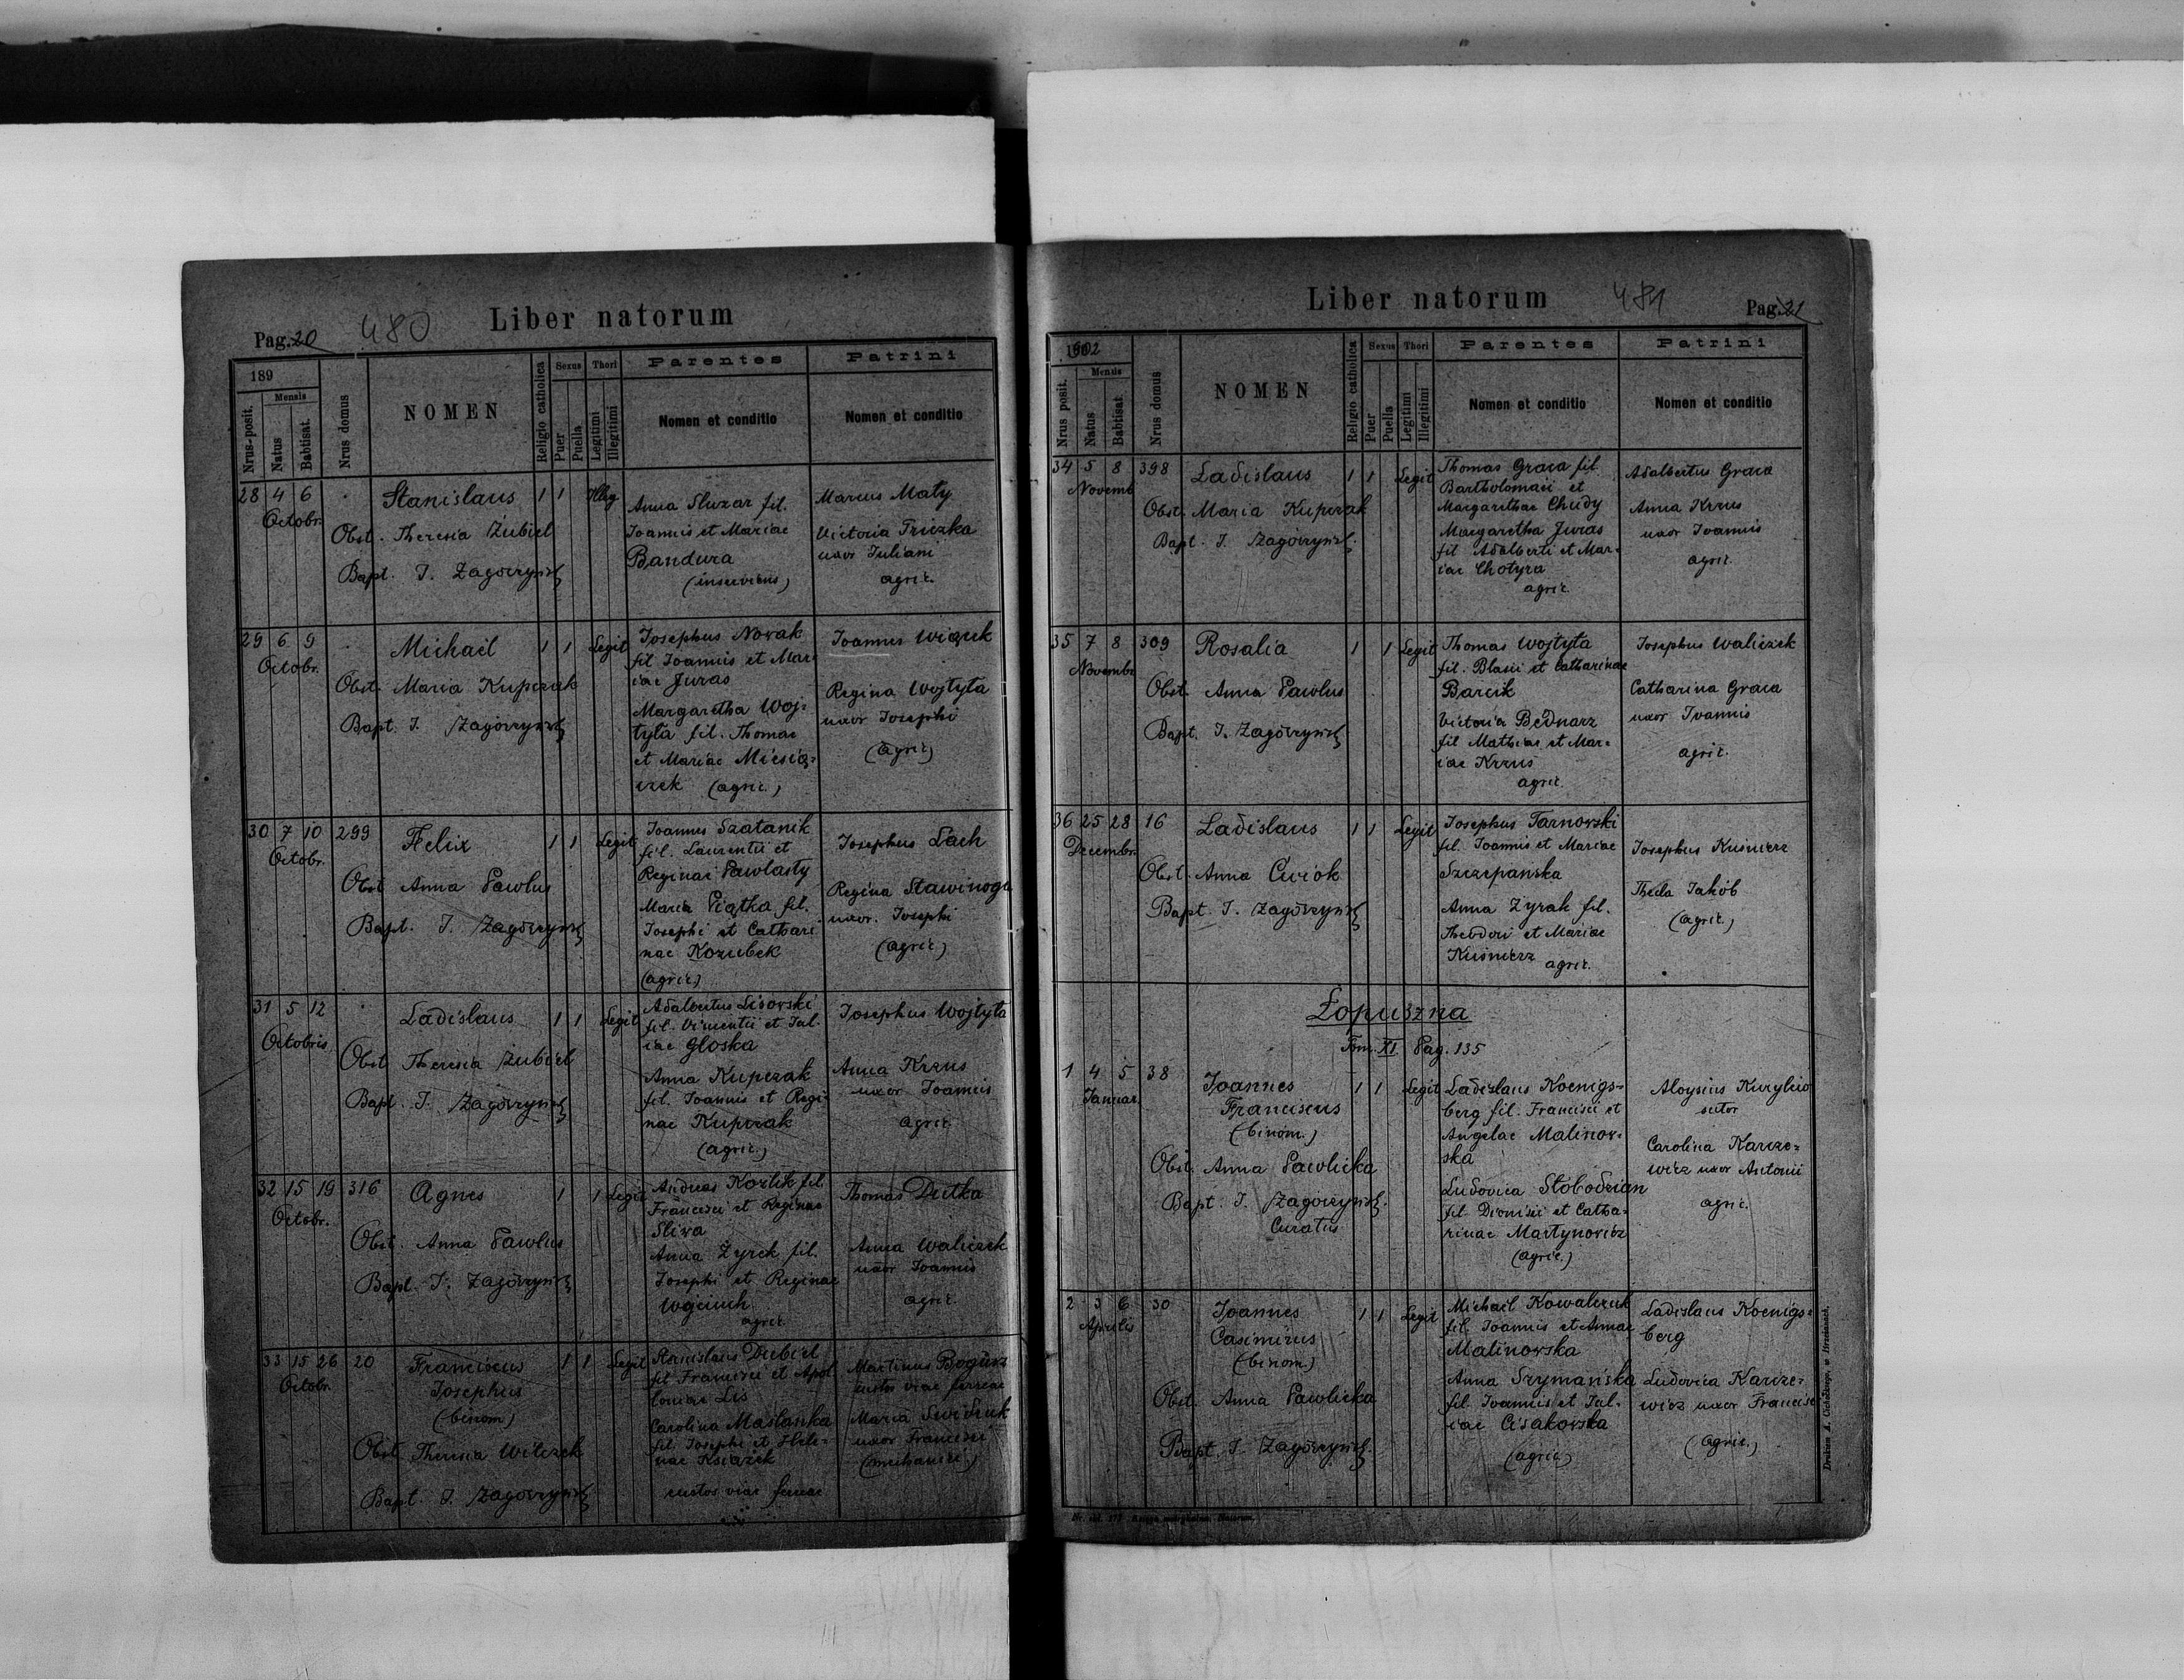 Pag. 20
480
Liber natorum
189
Nrus-posit.
Mensis
Natus
Babtisat.
Nrus domus
NOMEN
Religio catholica
Sexus
Puer
Puella
Thori
Legitimi
Illegitimi
Parentes
Nomen et conditio
Patrini
Nomen et conditio
28 4 6
Octobr.
Stanislaus 1 1 Illeg
Obst. Theresia Zubiel
Bapt. J. Zagórzyński
Anna Sluzar fil.
Joannis et Mariae
Bandura
(inserviens)
Marcus Maty
Victoria
uxor Juliani
agric.
29 6 9
Octobr.
Michaël 1 1 Legit
Obst. Maria Kupczak
Bapt. J. Zagórzyński
Josephus Novak
fil Joannis et Mar-
iae Juras
Margaretha Woj-
tyła fil. Thomae
et Mariae Miesią-
czek (agric.)
Joannes Wiącek
Regina Wojtyła
uxor Josephi
(agric)
30 7 10 299
Octobr.
Felix 1 1 Legit
Obst Anna Pawlus
Bapt. J. Zagórzyński
Joannes Szatanik
fil. Laurentii et
Reginae Pawlasty
Maria Piątka fil.
Josephi et Cathari
nae Kozubek
(agric)
Josephus Lach
Regina Stawinoga
uxor. Josephi
(agric)
31 5 12
Octobris
Ladislaus 1 1 Legit
Obst Theresia Zubiel
Bapt. J. Zagórzyński
Adalbertus Lisowski
fil. Vincentii et Jul-
iae Gloska
Anna Kupczak
fil. Joannis et Regi-
nae Kupczak
(agric.)
Josephus Wojtyła
Anna Krzus
uxor Joannis
agric.
32 15 19 316
Octobr.
Agnes 1 1 Legit
Obst. Anna Pawlus
Bapt. J. Zagórzyński
Andreas Kozlik fil
Francisci et Reginae
Sliwa
Anna Żyrek fil.
Josephi et Reginae
Wojciuch
agric
Thomas Dutka
Anna Waliczek
uxor Joannis
agric
33 15 26 20
Octobr.
Franciscus 1 1 Legit
Josephus
(binom)
Obst Theresia Wilczek
Bapt. J. Zagórzyński
Stanislaus Dubiel
fil Francisci et Apol
loniae Lis
Carolina Maslanka
fil Josephi et Hele-
nae Książek
custos viae ferreae
Martinus Bogusz
custos viae ferreae
Maria
uxor Francisci
(mechanici)
Liber natorum
481
Pag. 21
1902
Nrus posit.
Mensis
Natus
Babtisat.
Nrus domus
NOMEN
Religio catholica
Sexus
Puer
Puella
Thori
Legitimi
Illegitimi
Parentes
Nomen et conditio
Patrini
Nomen et conditio
34 5 8 398
Novemb
Ladislaus 1 1 Legit
Obst. Maria Kupczak
Bapt. J. Zagórzyński
Thomas Graca fil.
Bartholomaei et
Margarithae Chudy
Margaretha Juras
fil Adalberti et Mar-
iae Chotyra
agric.
Adalbertus Graca
Anna Krzus
uxor Joannis
agric.
35 7 8 309
Novembr
Rosalia 1 1 Legit
Obst. Anna Pawlus
Bapt. J. Zagórzyński
Thomas Wojtyła
fil. Blasii et Catharinae
Barcik
Victoria Bednarz
fil Mathiae et Mar-
iae Krzus
agric.
Josephus Waliczek
Catharina Graca
uxor Joannis
agric.
36 25 28 16
Decembr.
Ladislaus 1 1 Legit
Obst. Anna Ćwiok
Bapt. J. Zagórzyński
Josephus Tarnowski
fil. Joannis et Mariae
Szczepańska
Anna Zyrak fil.
Theodori et Mariae
Kuśnierz agric.
Josephus Kuśnierz
Thecla Jakób
(agric.)
Łopuszna
Tom. XI Pag. 135
1 4 5 38
Januar.
Joannes 1 1 Legit
Franciscus
(binom.)
Obst. Anna Pawlicka
Bapt. J. Zagórzyński.
Curatus
Ladislaus Koenigs-
berg fil. Francisci et
Angelae Malinow-
ska
Ludovica Słobodzian
fil Dionisii et Catha-
rinae Martynowicz
(agric.)
Aloysius
sutor
Carolina Karcze-
wicz uxor Antonii
agric.
2 3 6 30
Aprilis
Joannes 1 1 Legit
Casimirus
(binom)
Obst. Anna Pawlicka
Bapt. J. Zagórzyński
Michaël Kowalczuk
fil. Joannis et Annae
Malinowska
Anna Szymańska
fil. Joannis et Jul-
iae Cisakowska
(agric)
Ladislaus Koenigs-
berg
Ludovica Karcze-
wicz uxor Francisci
(agric.)